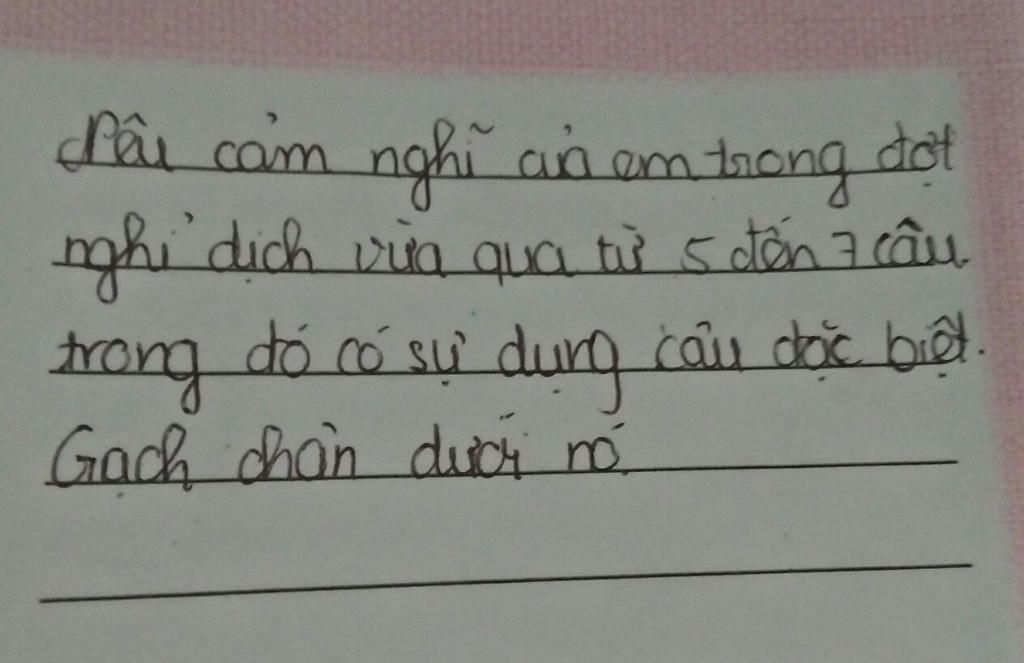 cảm nghĩ của em trong đợt
nghỉ dịch vừa qua từ 5 đến 7 câu
trong đó có sự dụng câu đặc biệt.
Gạch chân dưới nó